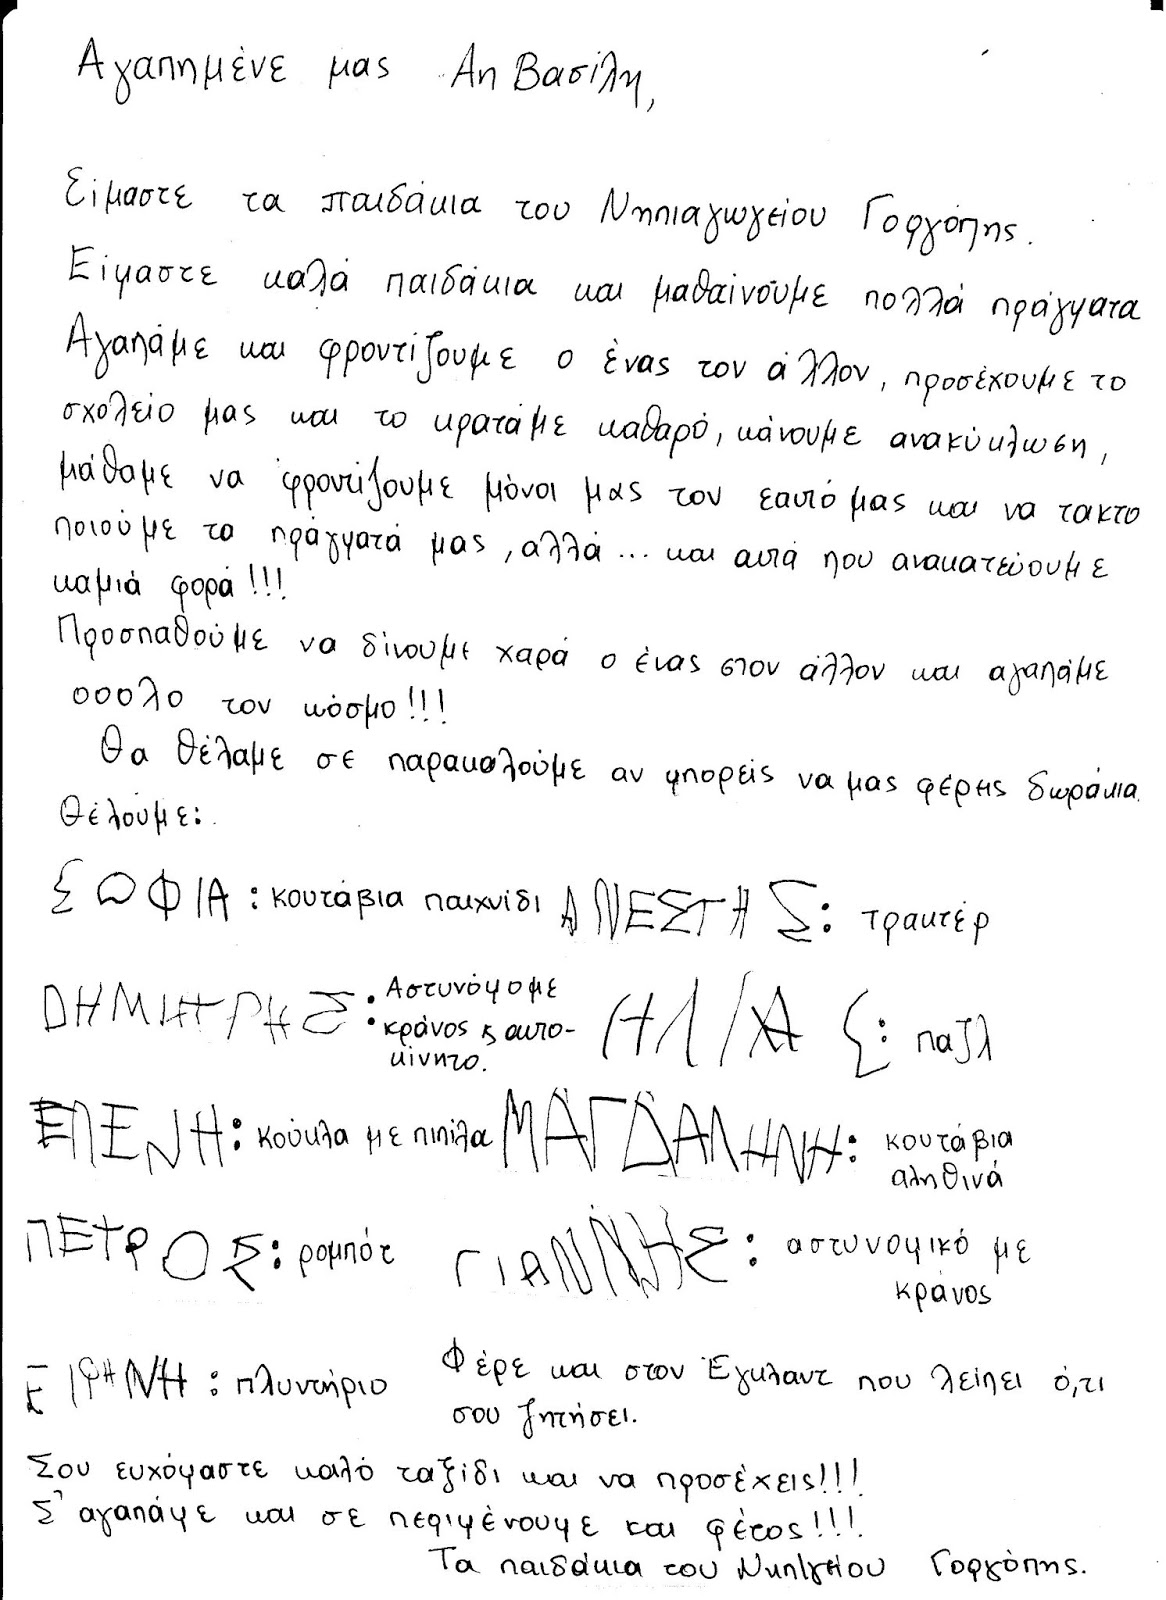 Αγαπημένε μας Αη Βασίλη,
Είμαστε τα παιδάκια του Νηπιαγωγείου Γοργόπης.
Είμαστε καλά παιδάκια και μαθαίνουμε πολλά πράγματα
Αγαπάμε και φροντίζουμε ο ένας τον άλλον, προσέχουμε το
σχολείο μας και το κρατάμε καθαρό, κάνουμε ανακύκλωση,
μάθαμε να φροντίζουμε μόνοι μας τον εαυτό μας και να τακτο
ποιούμε τα πράγματά μας, αλλά... και αυτά που ανακατεύουμε
καμιά φορά!!!
Προσπαθούμε να δίνουμε χαρά ο ένας στον άλλον και αγαπάμε
οοολο τον κόσμο!!!
Θα θέλαμε σε παρακαλούμε αν μπορείς να μας φέρης δωράκια.
Θέλουμε:
ΣΟΦΙΑ: κουτάβια παιχνίδι ΑΝΕΣΤΗΣ: τρακτέρ
DΗΜΗΤΡΗΣ: Αστυνόμο με
κράνος κ αυτο-
κίνητο. ΗΛΙΑΣ: παζλ
ΕΛΕΝΗ: κούκλα με πιπίλα ΜΑΓΔΑΛΗΝΗ: κουτάβια
αληθινά
ΠΕΤΡΟΣ: ρομπότ ΓΙΑΝΝΗΣ: αστυνομικό με
κράνος
ΕΙΡΗΝΗ: πλυντήριο Φέρε και στον Έγκλαντ που λείπει ό,τι
σου ζητήσει.
Σου ευχόμαστε καλό ταξίδι και να προσέχεις!!!
Σ' αγαπάμε και σε περιμένουμε και φέτος!!!
Τα παιδάκια του Γοργόπης.